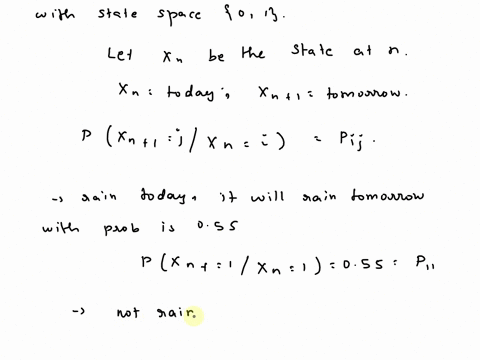 with state space {0, 1}.
Let Xn be the state at n.
Xn: today, Xn+1 = tomorrow.
P (Xn+1 = j / Xn = i) = Pij.
→ rain today, it will rain tomorrow
with prob is 0.55
P (Xn+ = 1 / Xn = 1) = 0.55 = P11
→ not rain